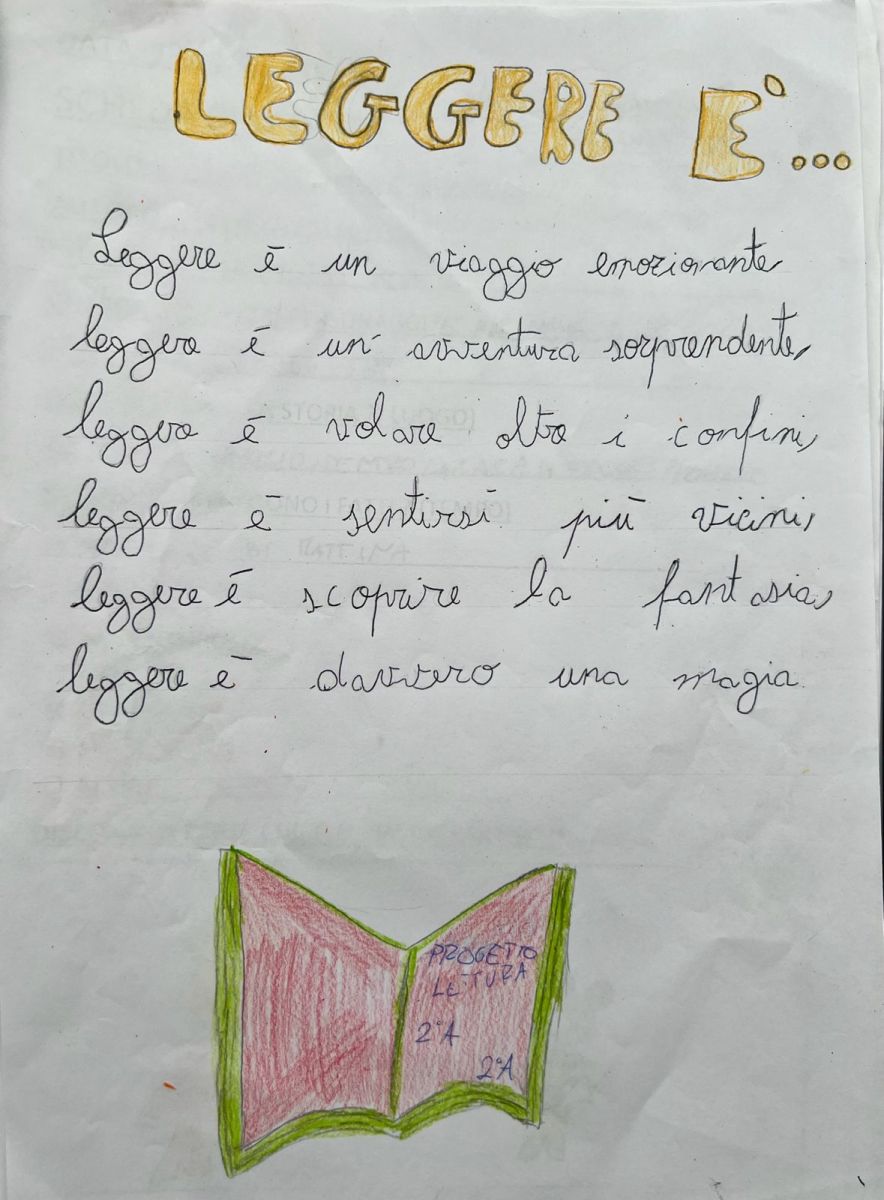 LEGGERE È...
Leggere è un viaggio emozionante
leggere è un' avventura sorprendente,
leggere è volare oltre i confini,
leggere è sentirsi più vicini,
leggere è scoprire la fantasia,
leggere è davvero una magia.
PROGETTO
LETTURA
2°A
2°A